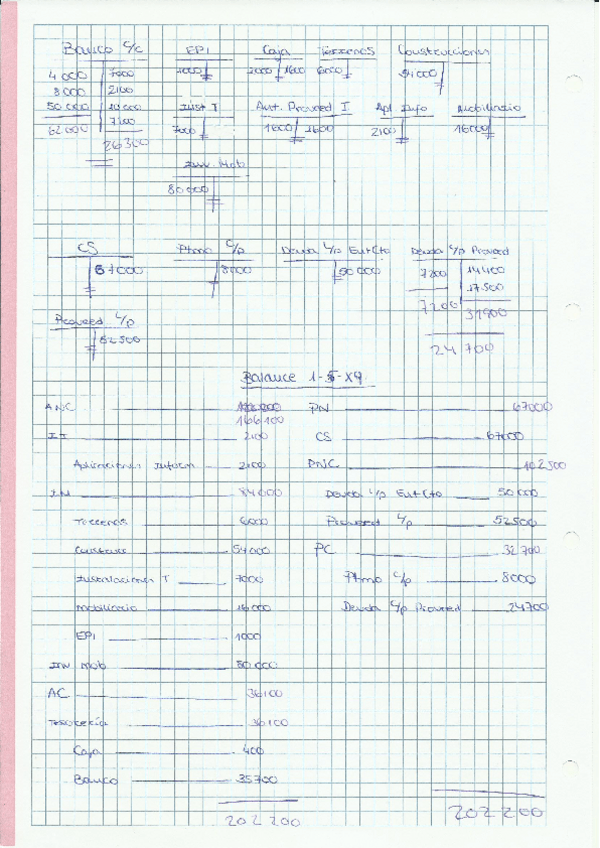 Banco c/c EPI Caja Terrenos Construcciones
4000 7000 1000 2000 1600 6000 54000
8000 2100
50000 10000 Inst T Ant. Proveed I Apl Info Mobiliario
62000 7200 7000 1600 1600 2100 16000
26300
Inv. Mob
80000
CS Ptmo c/p Deuda L/p Ent Cto Deuda c/p Proveed
67000 8000 50000 7200 14400
17500
7200 31900
Proveed L/p
52500 24 700
Balance 1-5-X9
ANC PN 67000
166100
II 2100 CS 67000
Aplicaciones Inform 2100 PNC 102500
IM 84000 Deuda L/p Ent Cto 50000
Terrenos 6000 Proveed L/p 52500
Construcc 54000 PC 32 700
Instalaciones T 7000 Ptmo c/p 8000
Mobiliario 16000 Deuda c/p Proveed 24700
EPI 1000
Inv Mob 80000
AC 36100
Tesorería 36100
Caja 400
Banco 35700
202 200 202 200